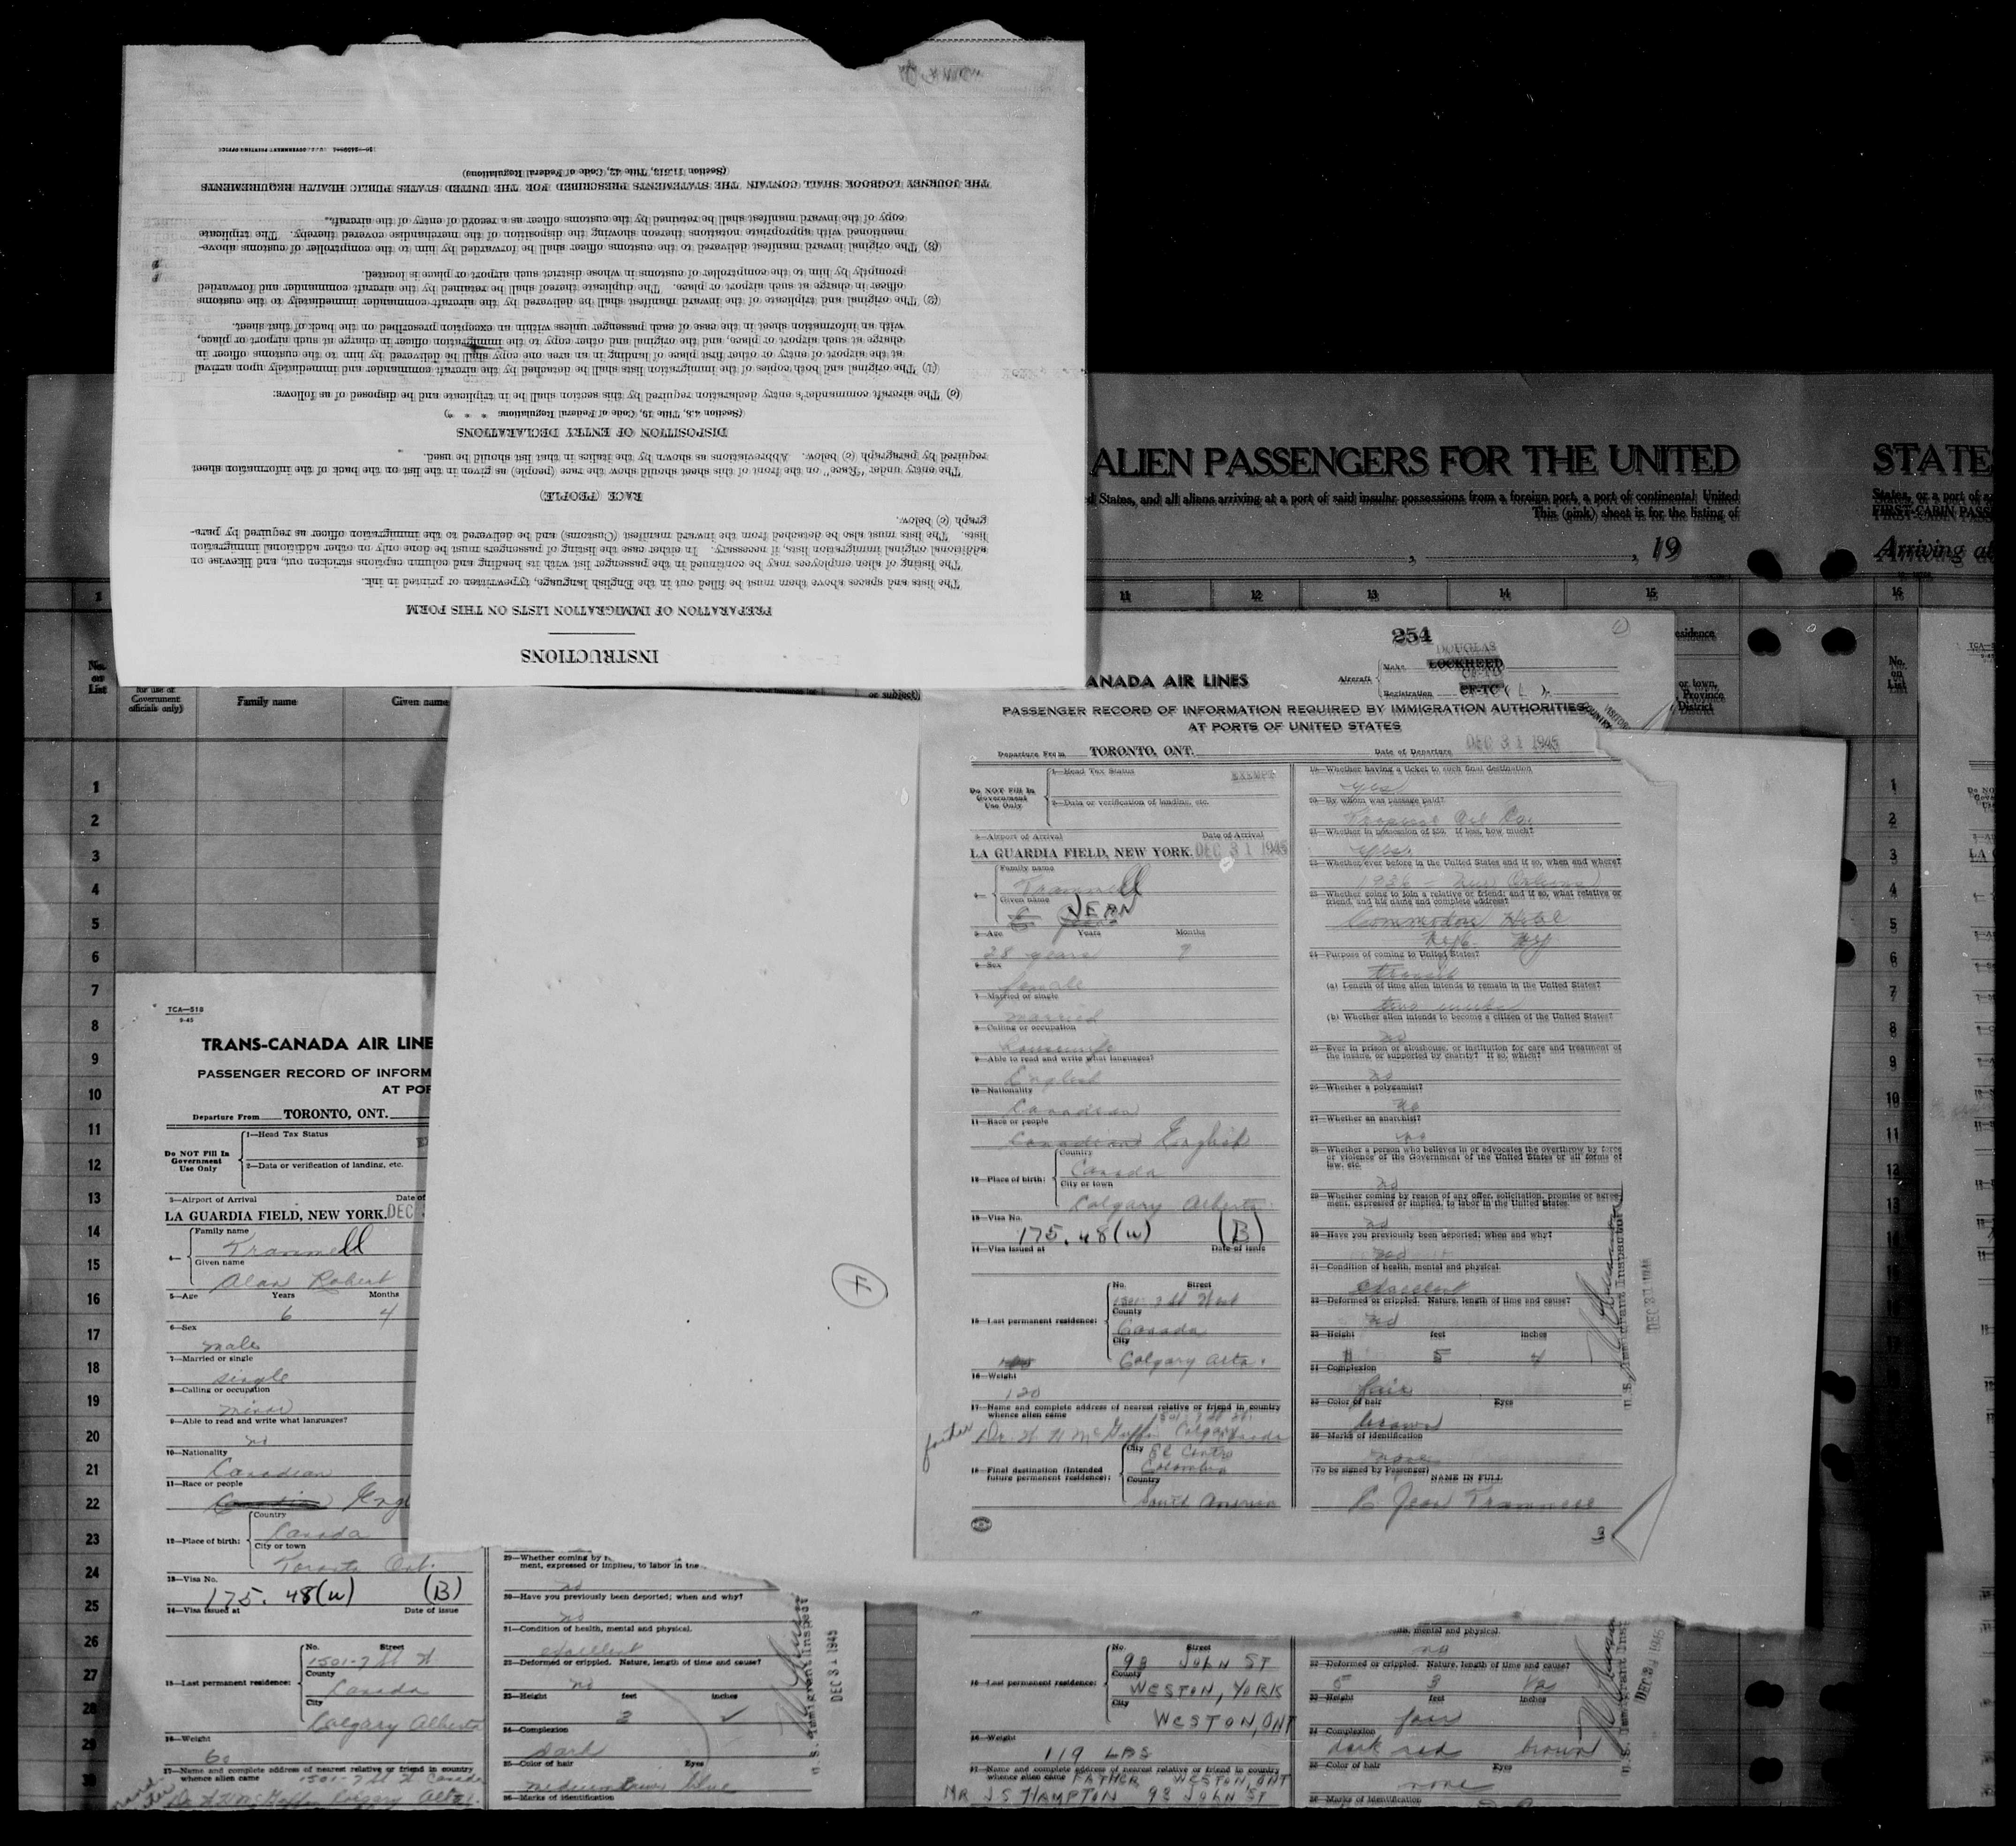 INSTRUCTIONS
PREPARATION OF IMMIGRATION LISTS ON THIS FORM
The lists and spaces above them must be filled out in the English language, typewritten or printed in ink.
The listing of alien employees may be continued in the passenger list with its heading and column captions stricken out, and likewise on
additional original immigration lists, if necessary. In either case the listing of passengers must be done only on other additional immigration
lists. The lists must also be detached from the inward manifest (Customs) and be delivered to the immigration officer as required by para-
graph (c) below.
RACE (PEOPLE)
The entry under "Race" on the front of this sheet should show the race (people) as given in the list on the back of the information sheet
required by paragraph (c) below. Abbreviations as shown by the italics in that list should be used.
DISPOSITION OF ENTRY DECLARATIONS
(Section 4.8, Title 19, Code of Federal Regulations * * *)
(c) The aircraft commander's entry declaration required by this section shall be in triplicate and be disposed of as follows:
(1) The original and both copies of the immigration lists shall be detached by the aircraft commander and immediately upon arrival
at the airport of entry or other first place of landing in an area one copy shall be delivered by him to the customs officer in
charge at such airport or place, and the original and other copy to the immigration officer in charge at such airport or place,
with an information sheet in the case of each passenger unless within an exception prescribed on the back of that sheet.
(2) The original and triplicate of the inward manifest shall be delivered by the aircraft commander immediately to the customs
officer in charge at such airport or place. The duplicate thereof shall be retained by the aircraft commander and forwarded
promptly by him to the comptroller of customs in whose district such airport or place is located.
(3) The original inward manifest delivered to the customs officer shall be forwarded by him to the comptroller of customs above-
mentioned with appropriate notations thereon showing the disposition of the merchandise covered thereby. The triplicate
copy of the inward manifest shall be retained by the customs officer as a record of entry of the aircraft.
THE JOURNEY LOGBOOK SHALL CONTAIN THE STATEMENTS PRESCRIBED FOR THE UNITED STATES PUBLIC HEALTH REQUIREMENTS
(Section 11.513, Title 42, Code of Federal Regulations)
U.S. GOVERNMENT PRINTING OFFICE
ALIEN PASSENGERS FOR THE UNITED
STATE
d States, and all aliens arriving at a port of said insular possessions from a foreign port, a port of continental United
States, or a port of
This (pink) sheet is for the listing of
FIRST-CABIN PASS
, 19
Arriving at
1 11 12 13 14 15 16
No. on List
for use of Government officials only)
Family name
Given name
or subject)
esidence
or town, Province District
No. on List
1
2
3
4
5
6
7
8
9
10
11
12
13
14
15
16
17
18
19
20
21
22
23
24
25
26
27
28
29
30
254
ANADA AIR LINES
Aircraft
Make DOUGLAS LOCKHEED
Registration CF-TD CF-TC (L)
PASSENGER RECORD OF INFORMATION REQUIRED BY IMMIGRATION AUTHORITIES
AT PORTS OF UNITED STATES
Departure From TORONTO, ONT.
Date of Departure DEC 31 1945
Do NOT Fill In Government Use Only
1—Head Tax Status EXEMPT
2—Data or verification of landing, etc.
3—Airport of Arrival Date of Arrival
LA GUARDIA FIELD, NEW YORK. DEC 31 1945
4—
Family name
Trammell
Given name
E. Jean JEAN
5—Age Years Months
28 years 9
6—Sex
female
7—Married or single
married
8—Calling or occupation
housewife
9—Able to read and write what languages?
English
10—Nationality
Canadian
11—Race or people
Canadian English
12—Place of birth:
Country
Canada
City or town
Calgary Alberta
13—Visa No.
175.48(w) (B)
14—Visa issued at Date of issue
15—Last permanent residence:
No. Street
1501-7 St West
County
Canada
City
Calgary Alta.
16—Weight
120
17—Name and complete address of nearest relative or friend in country
whence alien came
father Dr. H H McGuffin Calgary Canada
18—Final destination (Intended
future permanent residence):
City
El Centro
Colombia
Country
South America
19—Whether having a ticket to such final destination
yes
20—By whom was passage paid?
Tropical Oil Co.
21—Whether in possession of $50. If less, how much?
yes
22—Whether ever before in the United States and if so, when and where?
1936 - New Orleans
23—Whether going to join a relative or friend; and if so, what relative or
friend, and his name and complete address?
Commodore Hotel
24—Purpose of coming to United States?
transit
(a) Length of time alien intends to remain in the United States?
two weeks
(b) Whether alien intends to become a citizen of the United States?
no
25—Ever in prison or almshouse, or institution for care and treatment of
the insane, or supported by charity? If so, which?
no
26—Whether a polygamist?
no
27—Whether an anarchist?
no
28—Whether a person who believes in or advocates the overthrow by force
or violence of the Government of the United States or all forms of
law, etc.
no
29—Whether coming by reason of any offer, solicitation, promise or agree-
ment, expressed or implied, to labor in the United States.
no
30—Have you previously been deported; when and why?
no
31—Condition of health, mental and physical.
excellent
32—Deformed or crippled. Nature, length of time and cause?
no
33—Height feet inches
5 4
34—Complexion
fair
35—Color of hair Eyes
brown
36—Marks of identification
none
(To be signed by Passenger)
NAME IN FULL
E. Jean Trammell
3
U.S. Immigrant Inspector
DEC 31 1945
TCA—518
9-45
TRANS-CANADA AIR LINE
PASSENGER RECORD OF INFORM
AT POR
Departure From TORONTO, ONT.
Do NOT Fill In Government Use Only
1—Head Tax Status
2—Data or verification of landing, etc.
3—Airport of Arrival Date of
LA GUARDIA FIELD, NEW YORK. DEC
4—
Family name
Trammell
Given name
Alan Robert
5—Age Years Months
6 4
6—Sex
male
7—Married or single
single
8—Calling or occupation
minor
9—Able to read and write what languages?
no
10—Nationality
Canadian
11—Race or people
Canadian Engl
12—Place of birth:
Country
Canada
City or town
Toronto Ont.
13—Visa No.
175.48(w) (B)
14—Visa issued at Date of issue
15—Last permanent residence:
No. Street
1501-7 St W
County
Canada
City
Calgary Alberta
16—Weight
60
17—Name and complete address of nearest relative or friend in country
whence alien came 1501-7 St W Canada
Dr. H H McGuffin Calgary Alta.
29—Whether coming by r
ment, expressed or implied, to labor in the
no
30—Have you previously been deported; when and why?
no
31—Condition of health, mental and physical.
excellent
32—Deformed or crippled. Nature, length of time and cause?
no
33—Height feet inches
3
34—Complexion
dark
35—Color of hair Eyes
medium brown blue
36—Marks of identification
DEC 31 1945
No. Street
93 JOHN ST
County
WESTON, YORK
15—Last permanent residence:
City
WESTON, ONT
16—Weight
119 LBS
17—Name and complete address of nearest relative or friend in country
whence alien came FATHER WESTON, ONT
MR J S HAMPTON 93 JOHN ST
mental and physical.
no
32—Deformed or crippled. Nature, length of time and cause?
5 3 1/2
33—Height feet inches
fair
34—Complexion
dark red brown
35—Color of hair Eyes
none
36—Marks of identification
DEC 31 1945